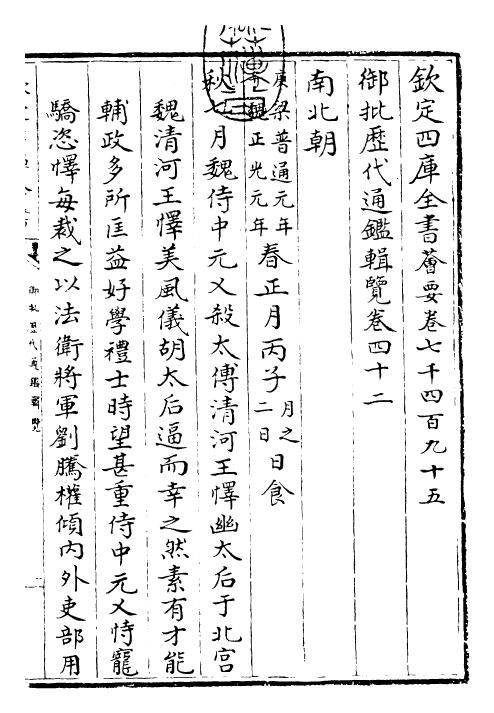 欽定四庫全書薈要卷七千四百九十五
御批歷代通鑑輯覽卷四十二
南北朝
庚子梁普通元年魏正光元年春正月丙子月之二日日食
秋七月魏侍中元乂殺太傅清河王懌幽太后于北宫
魏清河王懌美風儀胡太后逼而幸之然素有才能
輔政多所匡益好學禮士時望甚重侍中元乂恃寵
驕恣懌每裁之以法衛將軍劉騰權傾内外吏部用
御批歷代通鑑輯覽